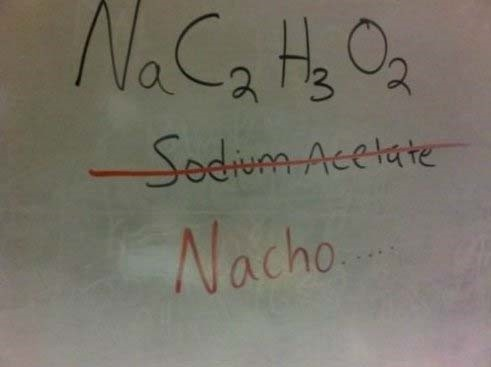 NaC₂H₃O₂
Sodium Acetate
Nacho.....